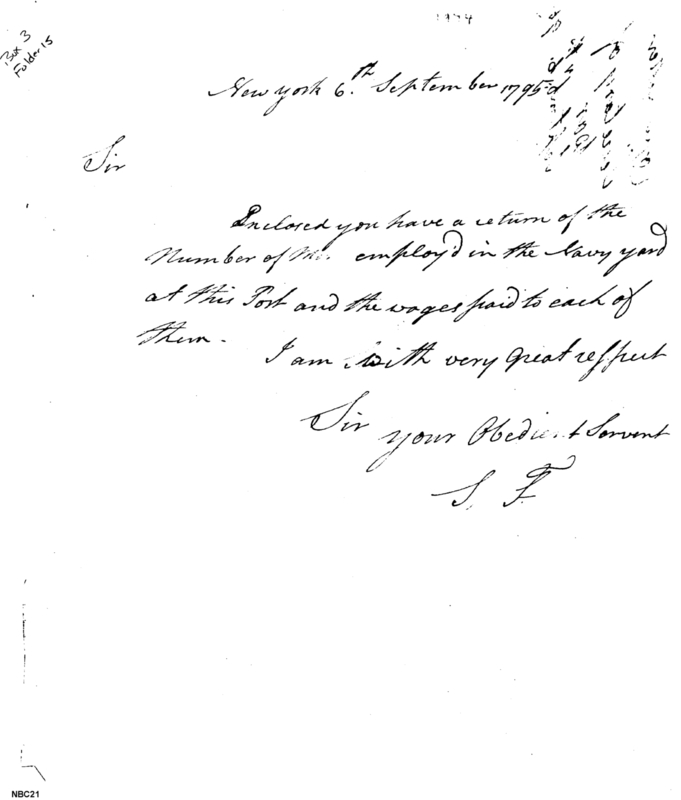 1794
Box 3
Folder 15
New york 6.th September 1795
Sir
Enclosed you have a return of the
Number of employ'd in the Navy yard
at this Port and the wages paid to each of
them.
I am with very great respect
Sir your Obedient Servent
S. F
NBC21